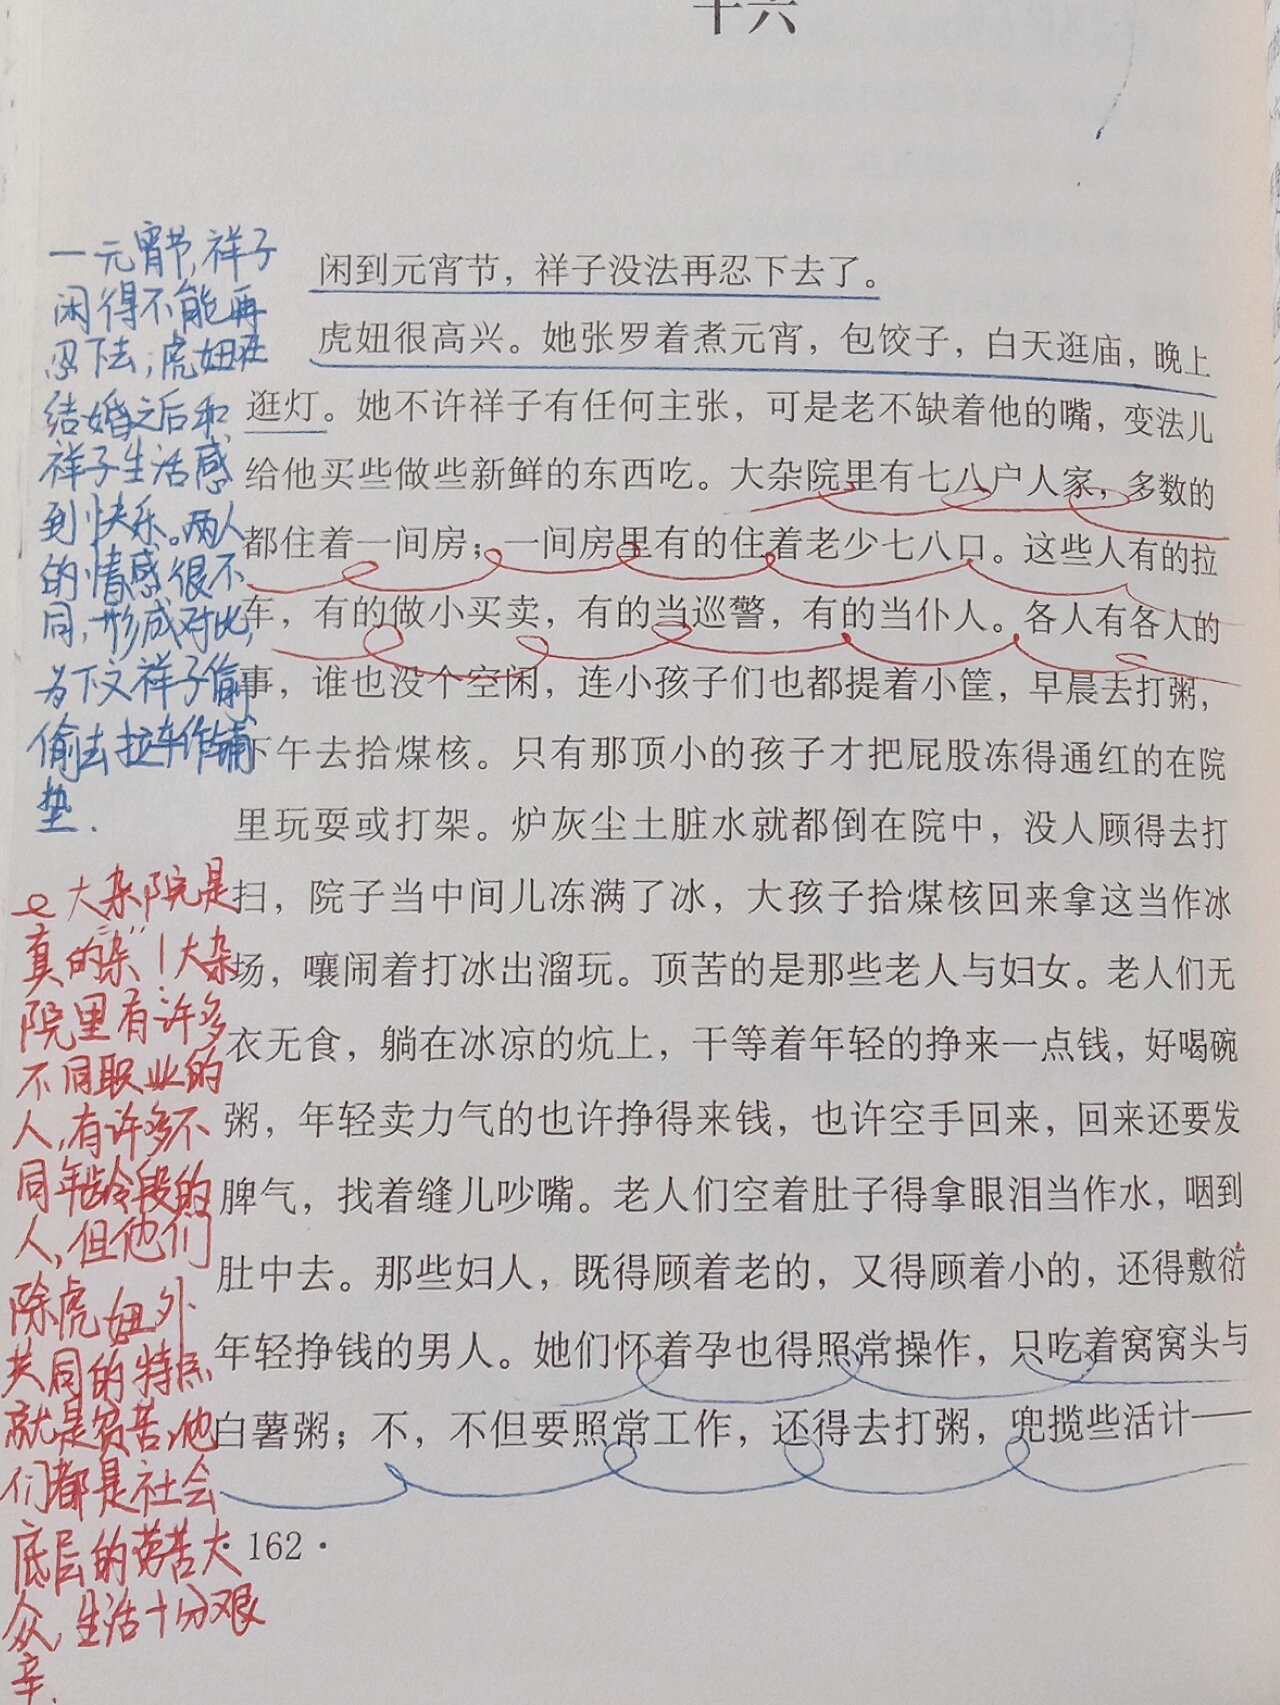 十六
闲到元宵节，祥子没法再忍下去了。
虎妞很高兴。她张罗着煮元宵，包饺子，白天逛庙，晚上
逛灯。她不许祥子有任何主张，可是老不缺着他的嘴，变法儿
给他买些做些新鲜的东西吃。大杂院里有七八户人家，多数的
都住着一间房；一间房里有的住着老少七八口。这些人有的拉
车，有的做小买卖，有的当巡警，有的当仆人。各人有各人的
事，谁也没个空闲，连小孩子们也都提着小筐，早晨去打粥，
下午去拾煤核。只有那顶小的孩子才把屁股冻得通红的在院
里玩耍或打架。炉灰尘土脏水就都倒在院中，没人顾得去打
扫，院子当中间儿冻满了冰，大孩子拾煤核回来拿这当作冰
场，嚷闹着打冰出溜玩。顶苦的是那些老人与妇女。老人们无
衣无食，躺在冰凉的炕上，干等着年轻的挣来一点钱，好喝碗
粥，年轻卖力气的也许挣得来钱，也许空手回来，回来还要发
脾气，找着缝儿吵嘴。老人们空着肚子得拿眼泪当作水，咽到
肚中去。那些妇人，既得顾着老的，又得顾着小的，还得敷衍
年轻挣钱的男人。她们怀着孕也得照常操作，只吃着窝窝头与
白薯粥；不，不但要照常工作，还得去打粥，兜揽些活计——
·162·
一元宵节，祥子
闲得不能再
忍下去，虎妞在
结婚之后和
祥子生活感
到快乐。两人
的情感很不
同，形成对比，
为下文祥子偷
偷去拉车作铺
垫.
大杂院是
真的“杂”！大杂
院里有许多
不同职业的
人，有许多不
同年龄段的
人，但他们
除虎妞外
共同的特点
就是贫苦，他
们都是社会
底层的劳苦大
众，生活十分艰
辛.